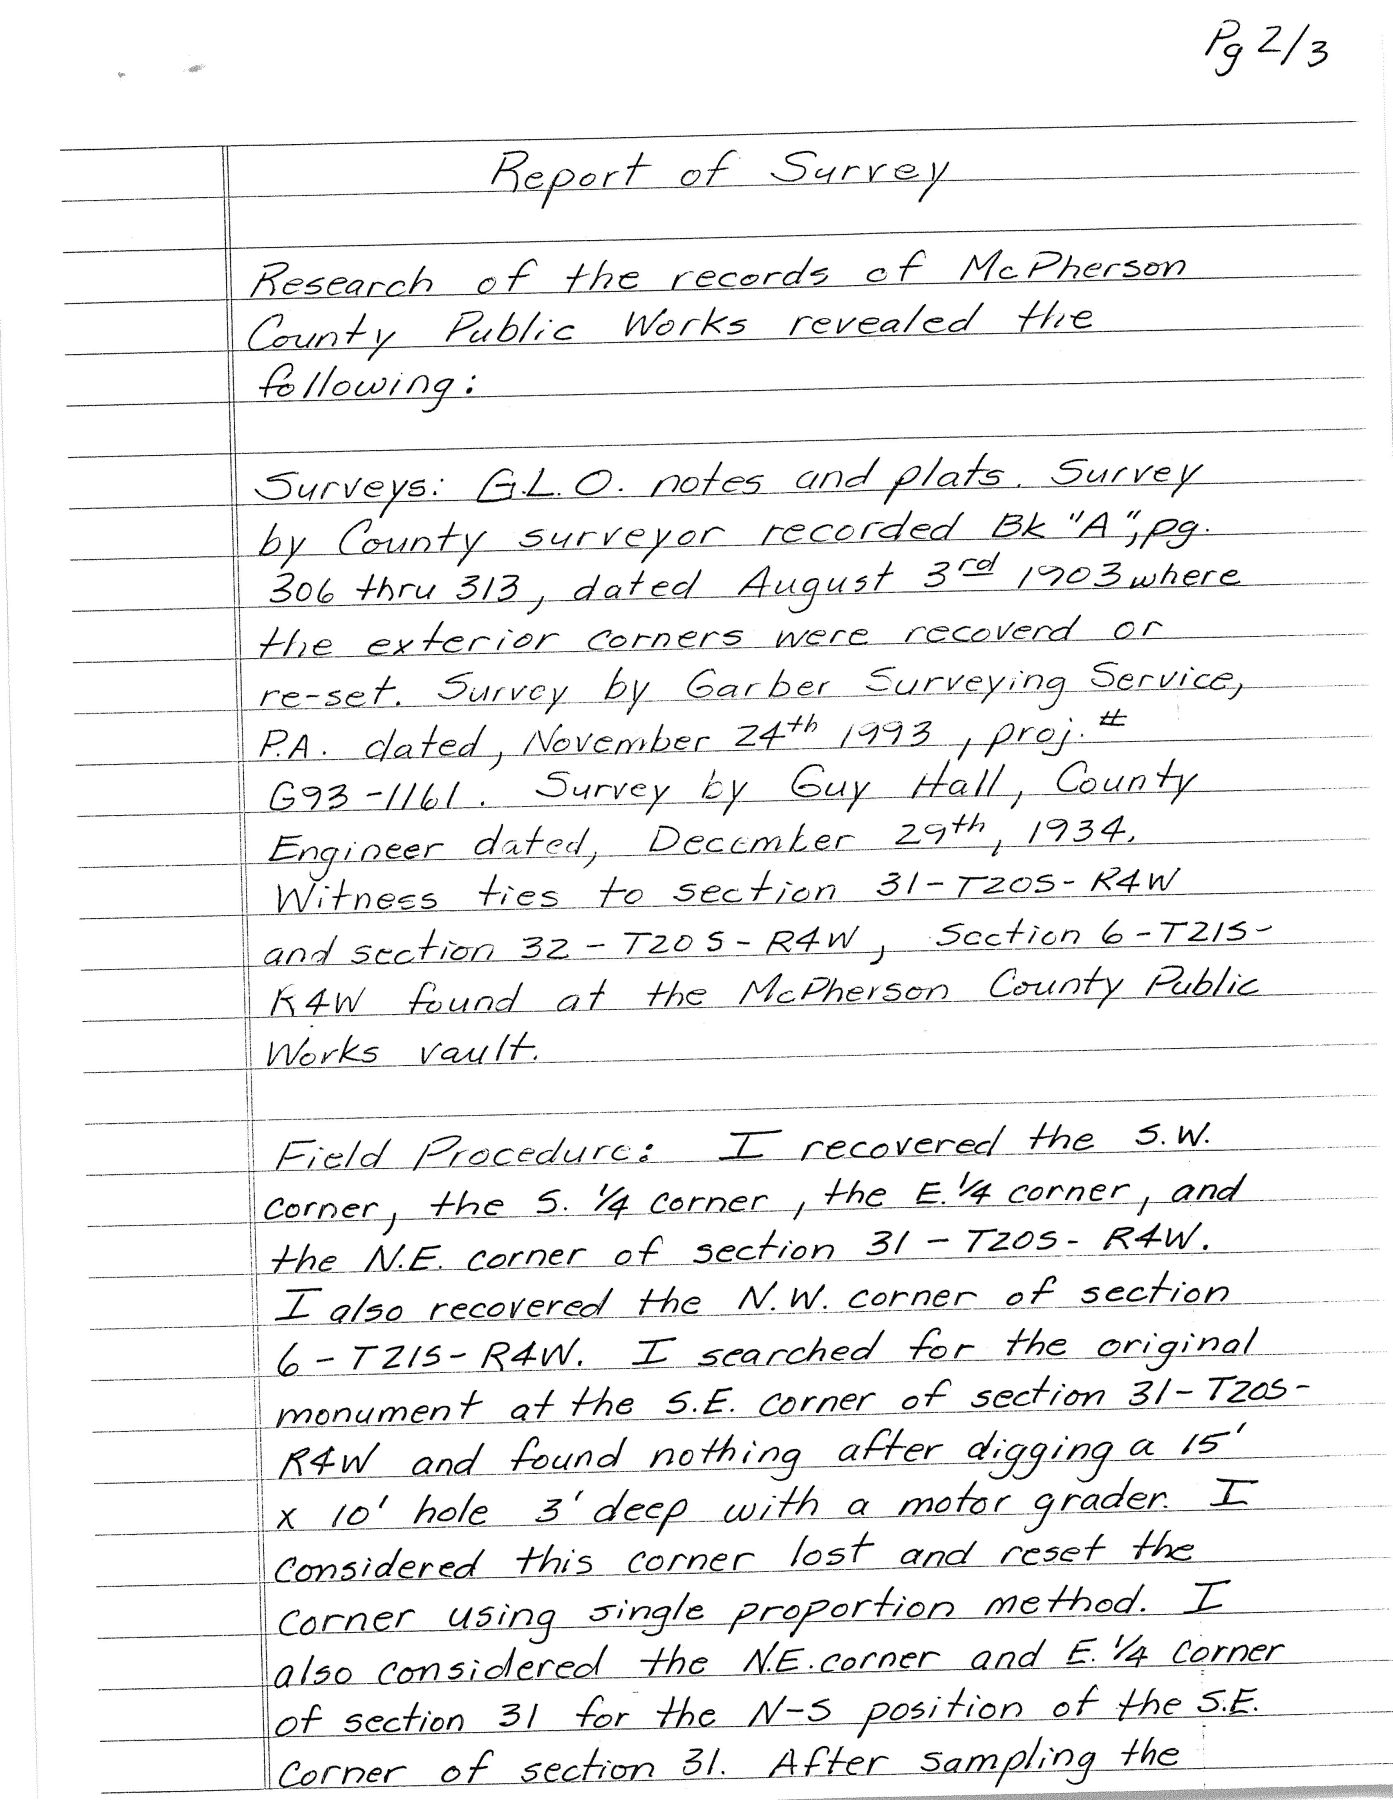 Pg 2/3
Report of Survey
Research of the records of McPherson
County Public Works revealed the
following:
Surveys: G.L.O. notes and plats. Survey
by County surveyor recorded Bk "A", pg.
306 thru 313, dated August 3rd 1903 where
the exterior corners were recoverd or
re-set. Survey by Garber Surveying Service,
P.A. dated, November 24th 1993, proj. #
G93-1161. Survey by Guy Hall, County
Engineer dated, December 29th, 1934.
Witness ties to section 31-T20S-R4W
and section 32-T20S-R4W, Section 6-T21S-
R4W found at the McPherson County Public
Works vault.
Field Procedure: I recovered the S.W.
corner, the S. 1/4 corner, the E. 1/4 corner, and
the N.E. corner of section 31-T20S-R4W.
I also recovered the N.W. corner of section
6-T21S-R4W. I searched for the original
monument at the S.E. corner of section 31-T20S-
R4W and found nothing after digging a 15'
x 10' hole 3' deep with a motor grader. I
considered this corner lost and reset the
corner using single proportion method. I
also considered the N.E. corner and E. 1/4 corner
of section 31 for the N-S position of the S.E.
corner of section 31. After sampling the